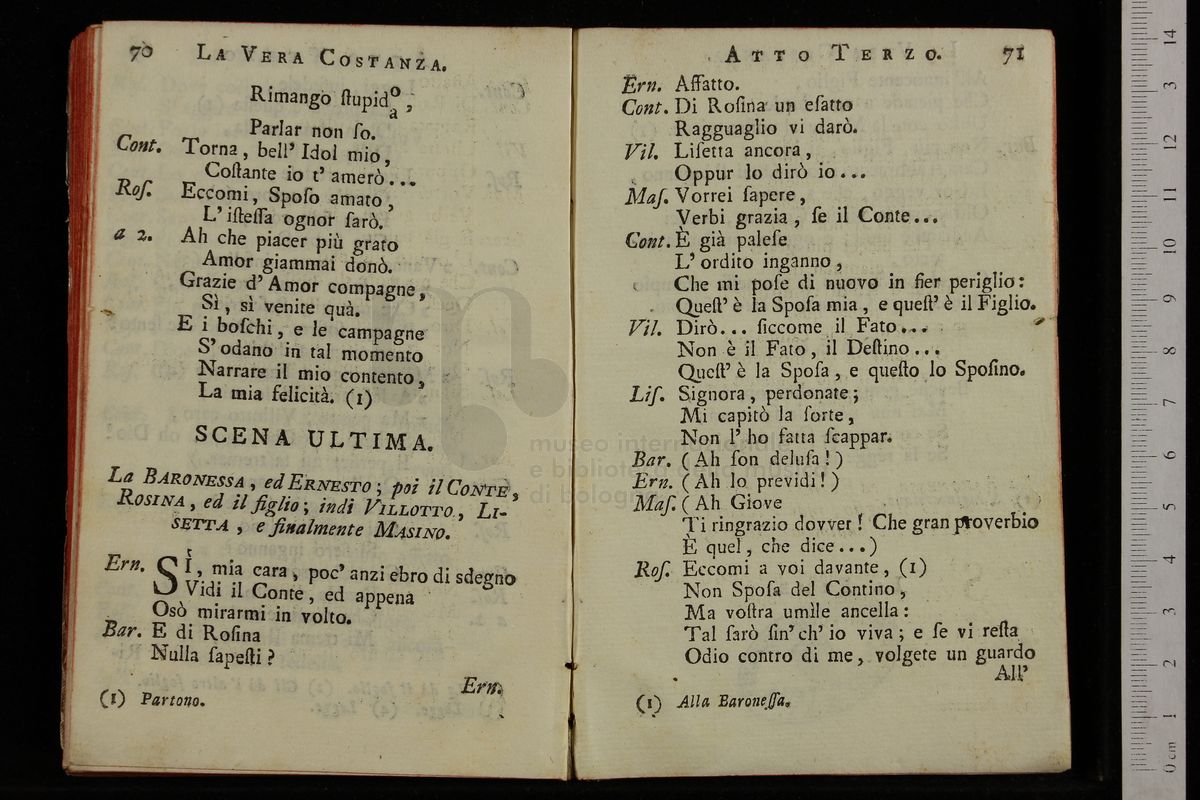 70 LA VERA COSTANZA.
Rimango ſtupid o/a,
Parlar non ſo.
Cont. Torna, bell' Idol mio,
Coſtante io t' amerò...
Roſ. Eccomi, Spoſo amato,
L' iſteſſa ognor ſarò.
a 2. Ah che piacer più grato
Amor giammai donò.
Grazie d' Amor compagne,
Sì, sì venite quà.
E i boſchi, e le campagne
S' odano in tal momento
Narrare il mio contento,
La mia felicità. (1)
SCENA ULTIMA.
La BARONESSA, ed ERNESTO; poi il CONTE,
ROSINA, ed il figlio; indi VILLOTTO, LI-
SETTA, e finalmente MASINO.
Ern. SÌ, mia cara, poc' anzi ebro di sdegno
Vidi il Conte, ed appena
Osò mirarmi in volto.
Bar. E di Roſina
Nulla ſapeſti?
Ern.
(1) Partono.
ATTO TERZO. 71
Ern. Affatto.
Cont. Di Roſina un eſatto
Ragguaglio vi darò.
Vil. Liſetta ancora,
Oppur lo dirò io...
Maſ. Vorrei ſapere,
Verbi grazia, ſe il Conte...
Cont. È già paleſe
L' ordito inganno,
Che mi poſe di nuovo in fier periglio:
Queſt' è la Spoſa mia, e queſt' è il Figlio.
Vil. Dirò... ſiccome il Fato...
Non è il Fato, il Deſtino...
Queſt' è la Spoſa, e queſto lo Spoſino.
Liſ. Signora, perdonate;
Mi capitò la ſorte,
Non l' ho fatta ſcappar.
Bar. (Ah ſon deluſa!)
Ern. (Ah lo previdi!)
Maſ. (Ah Giove
Ti ringrazio dovver! Che gran proverbio
È quel, che dice...)
Roſ. Eccomi a voi davante, (1)
Non Spoſa del Contino,
Ma voſtra umìle ancella:
Tal ſarò ſin' ch' io viva; e ſe vi reſta
Odio contro di me, volgete un guardo
All'
(1) Alla Baroneſſa.
museo internazionale
e biblioteca della musica
di bologna
0 cm 1 2 3 4 5 6 7 8 9 10 11 12 13 14